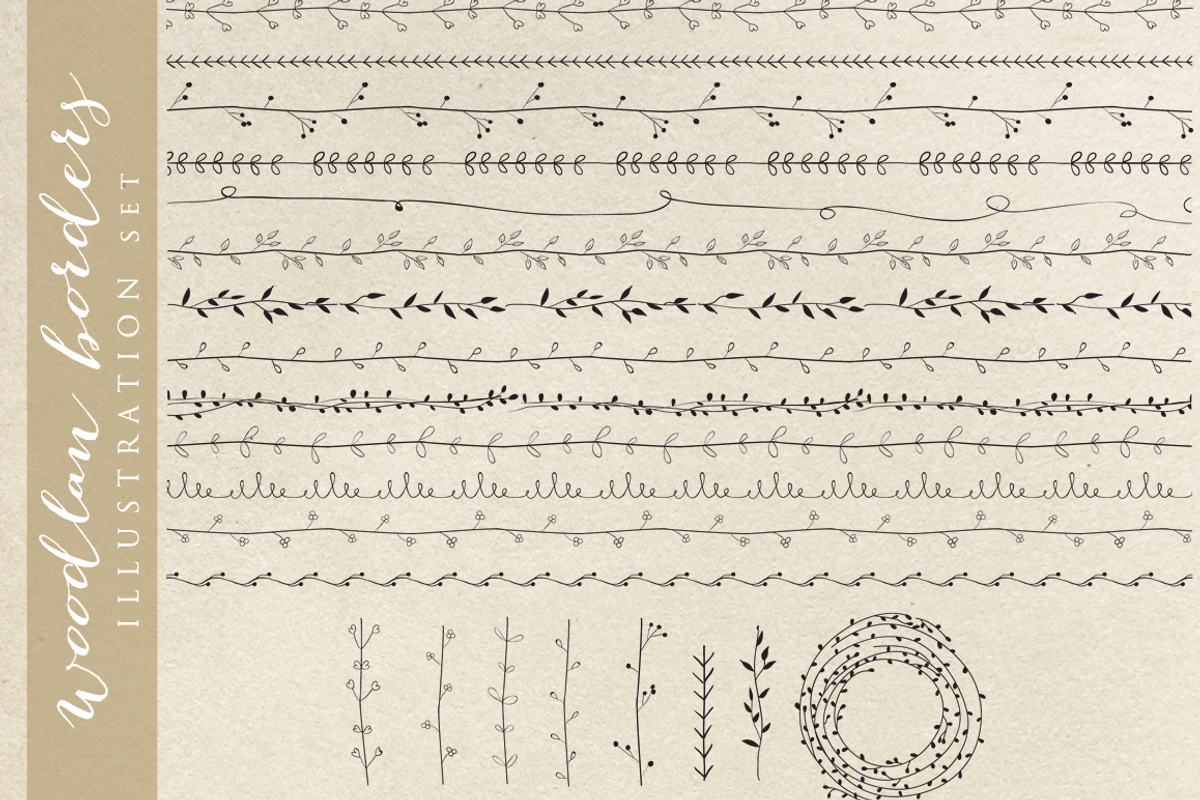 woodlan borders
ILLUSTRATION SET